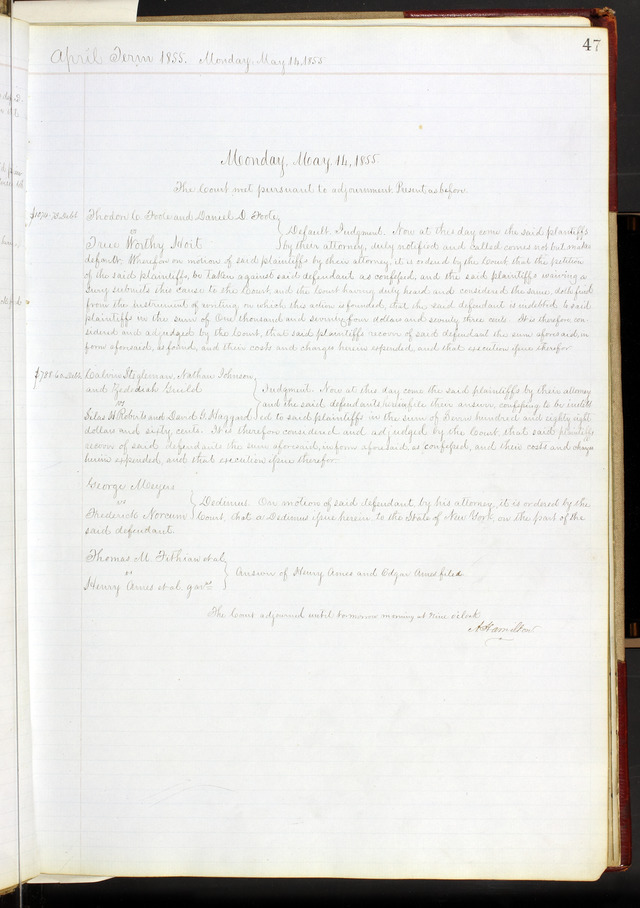 47
April Term 1855. Monday, May 14, 1855
Monday, May 14, 1855
The Court met pursuant to adjournment. Present as before.
$1074.70 Debt. Thodon C. Foote and Daniel D. Foote
vs
True Worthy Hoit
Default. Judgment. Now at this day come the said plaintiffs
by their attorney, duly notified and called comes not but makes
default. Wherefore on motion of said plaintiffs by their attorney, it is ordered by the Court that the petition
of the said plaintiffs, be taken against said defendant as confessed, and the said plaintiffs waiving a
Jury submits this cause to the Court, and the Court having duly heard and considered the same, doth find
from the instrument of writing on which this action is founded, that the said defendant is indebted to said
plaintiffs in the sum of One thousand and seventy four dollars and seventy three cents. It is therefore con-
sidered and adjudged by the Court, that said plaintiffs recover of said defendant the sum aforesaid, in
form aforesaid, as found, and their costs and charges herein expended, and that execution issue therefor.
$788.60 Debt. Calvin Stigleman, Nathan Johnson
and Zedediah Guild
vs
Silas H. Roberts and David G. Haggard
Judgment. Now at this day come the said plaintiffs by their attorney
and the said defendants file their answer, confessing to be indebt-
ed to said plaintiffs in the sum of Seven hundred and eighty eight
dollars and sixty cents. It is therefore considered and adjudged by the Court that said plaintiffs
recover of said defendants the sum aforesaid, in form aforesaid, as confessed, and their costs and charges
herein expended, and that execution issue therefor.
George Meyers
vs
Frederick Norcum
Dedimus. On motion of said defendant, by his attorney, it is ordered by the
Court, that a Dedimus issue herein, to the State of New York, on the part of the
said defendant.
Thomas M. Fithian et al
vs
Henry Ames et al. gar.
Answer of Henry Ames and Edgar Ames filed.
The Court adjourned until tomorrow morning at Nine o'clock
A Hamilton